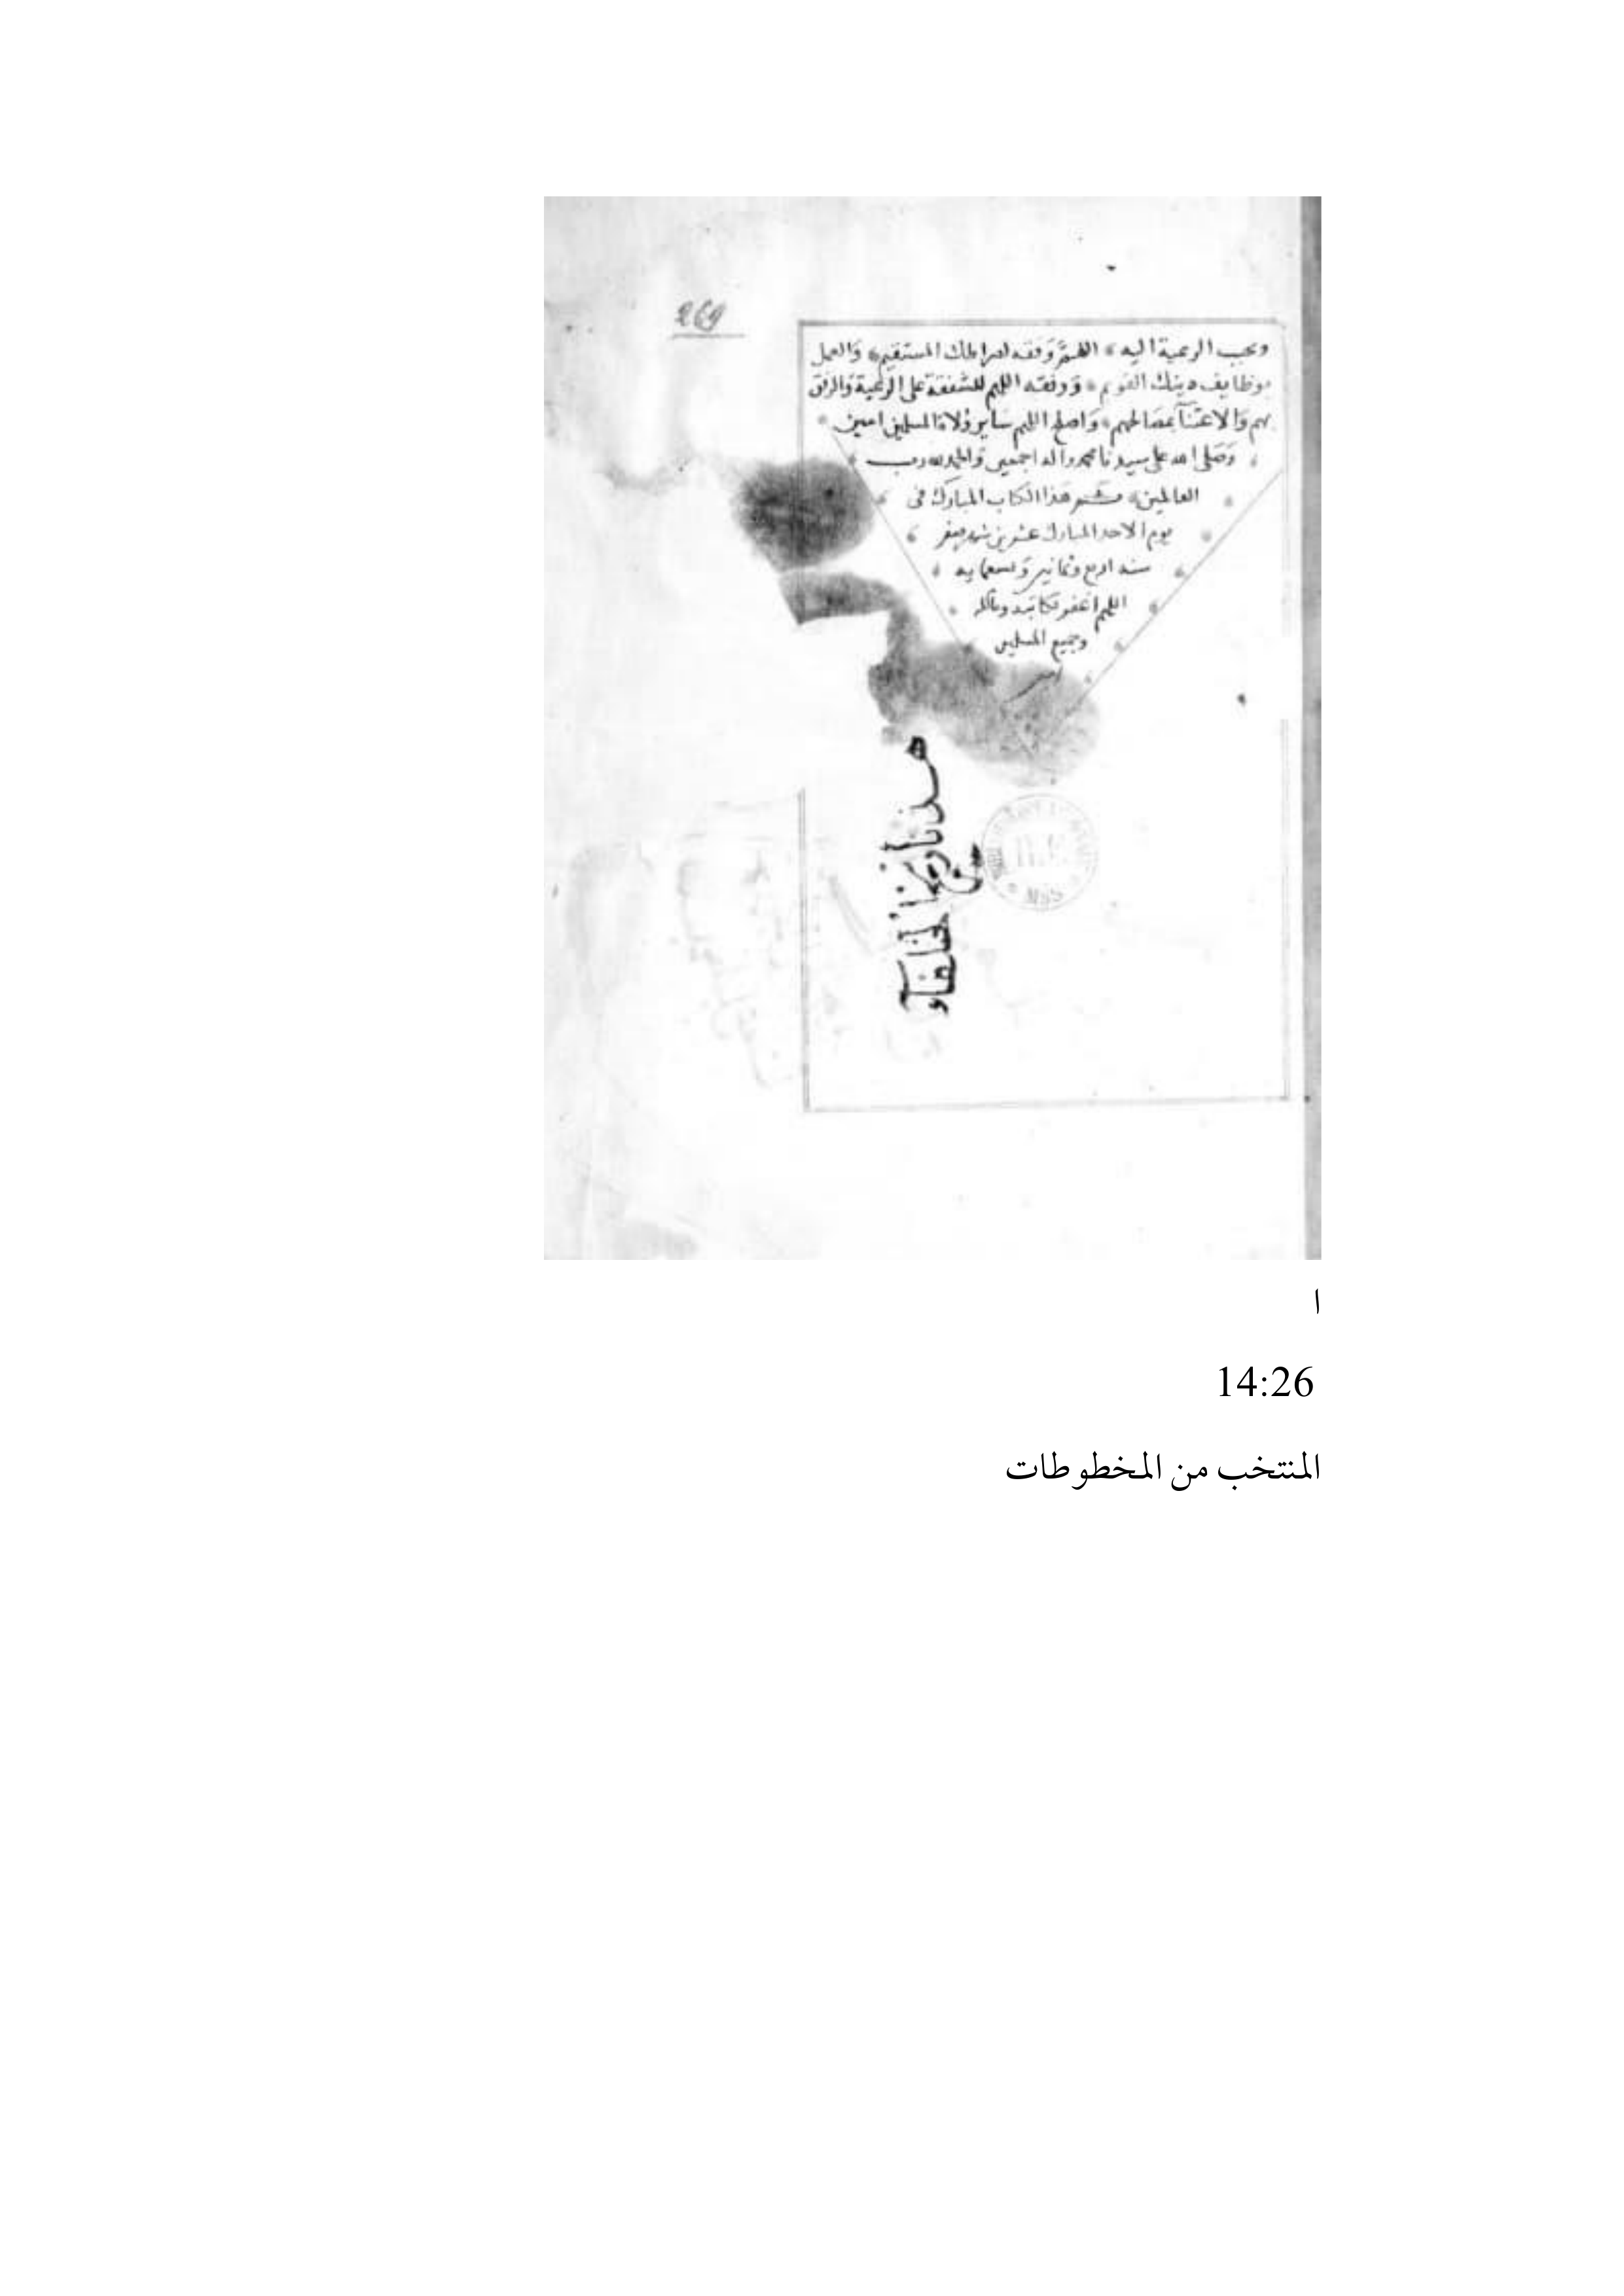 269
وتحب الرعية اليه اللهم وفقه لصراطك المستقيم والعمل
بوظايف دينك القويم ووفقه اللهم للشفقة على الرعية والرفق
بهم والاعتنآ بمصالحهم واصلح اللهم ساير ولاة المسلمين امين
وصلى الله على سيدنا محمد واله اجمعين والحمد لله رب
العالمين هذا الكتاب المبارك فى
يوم الاحد المبارك عشرين شهر صفر
سنه اربع وثمانين وتسعمايه
اللهم اغفر لكاتبه
وجميع المسلمين
امين
هذا تاريخ الخلفآ
MSS
ا
14:26
المنتخب من المخطوطات